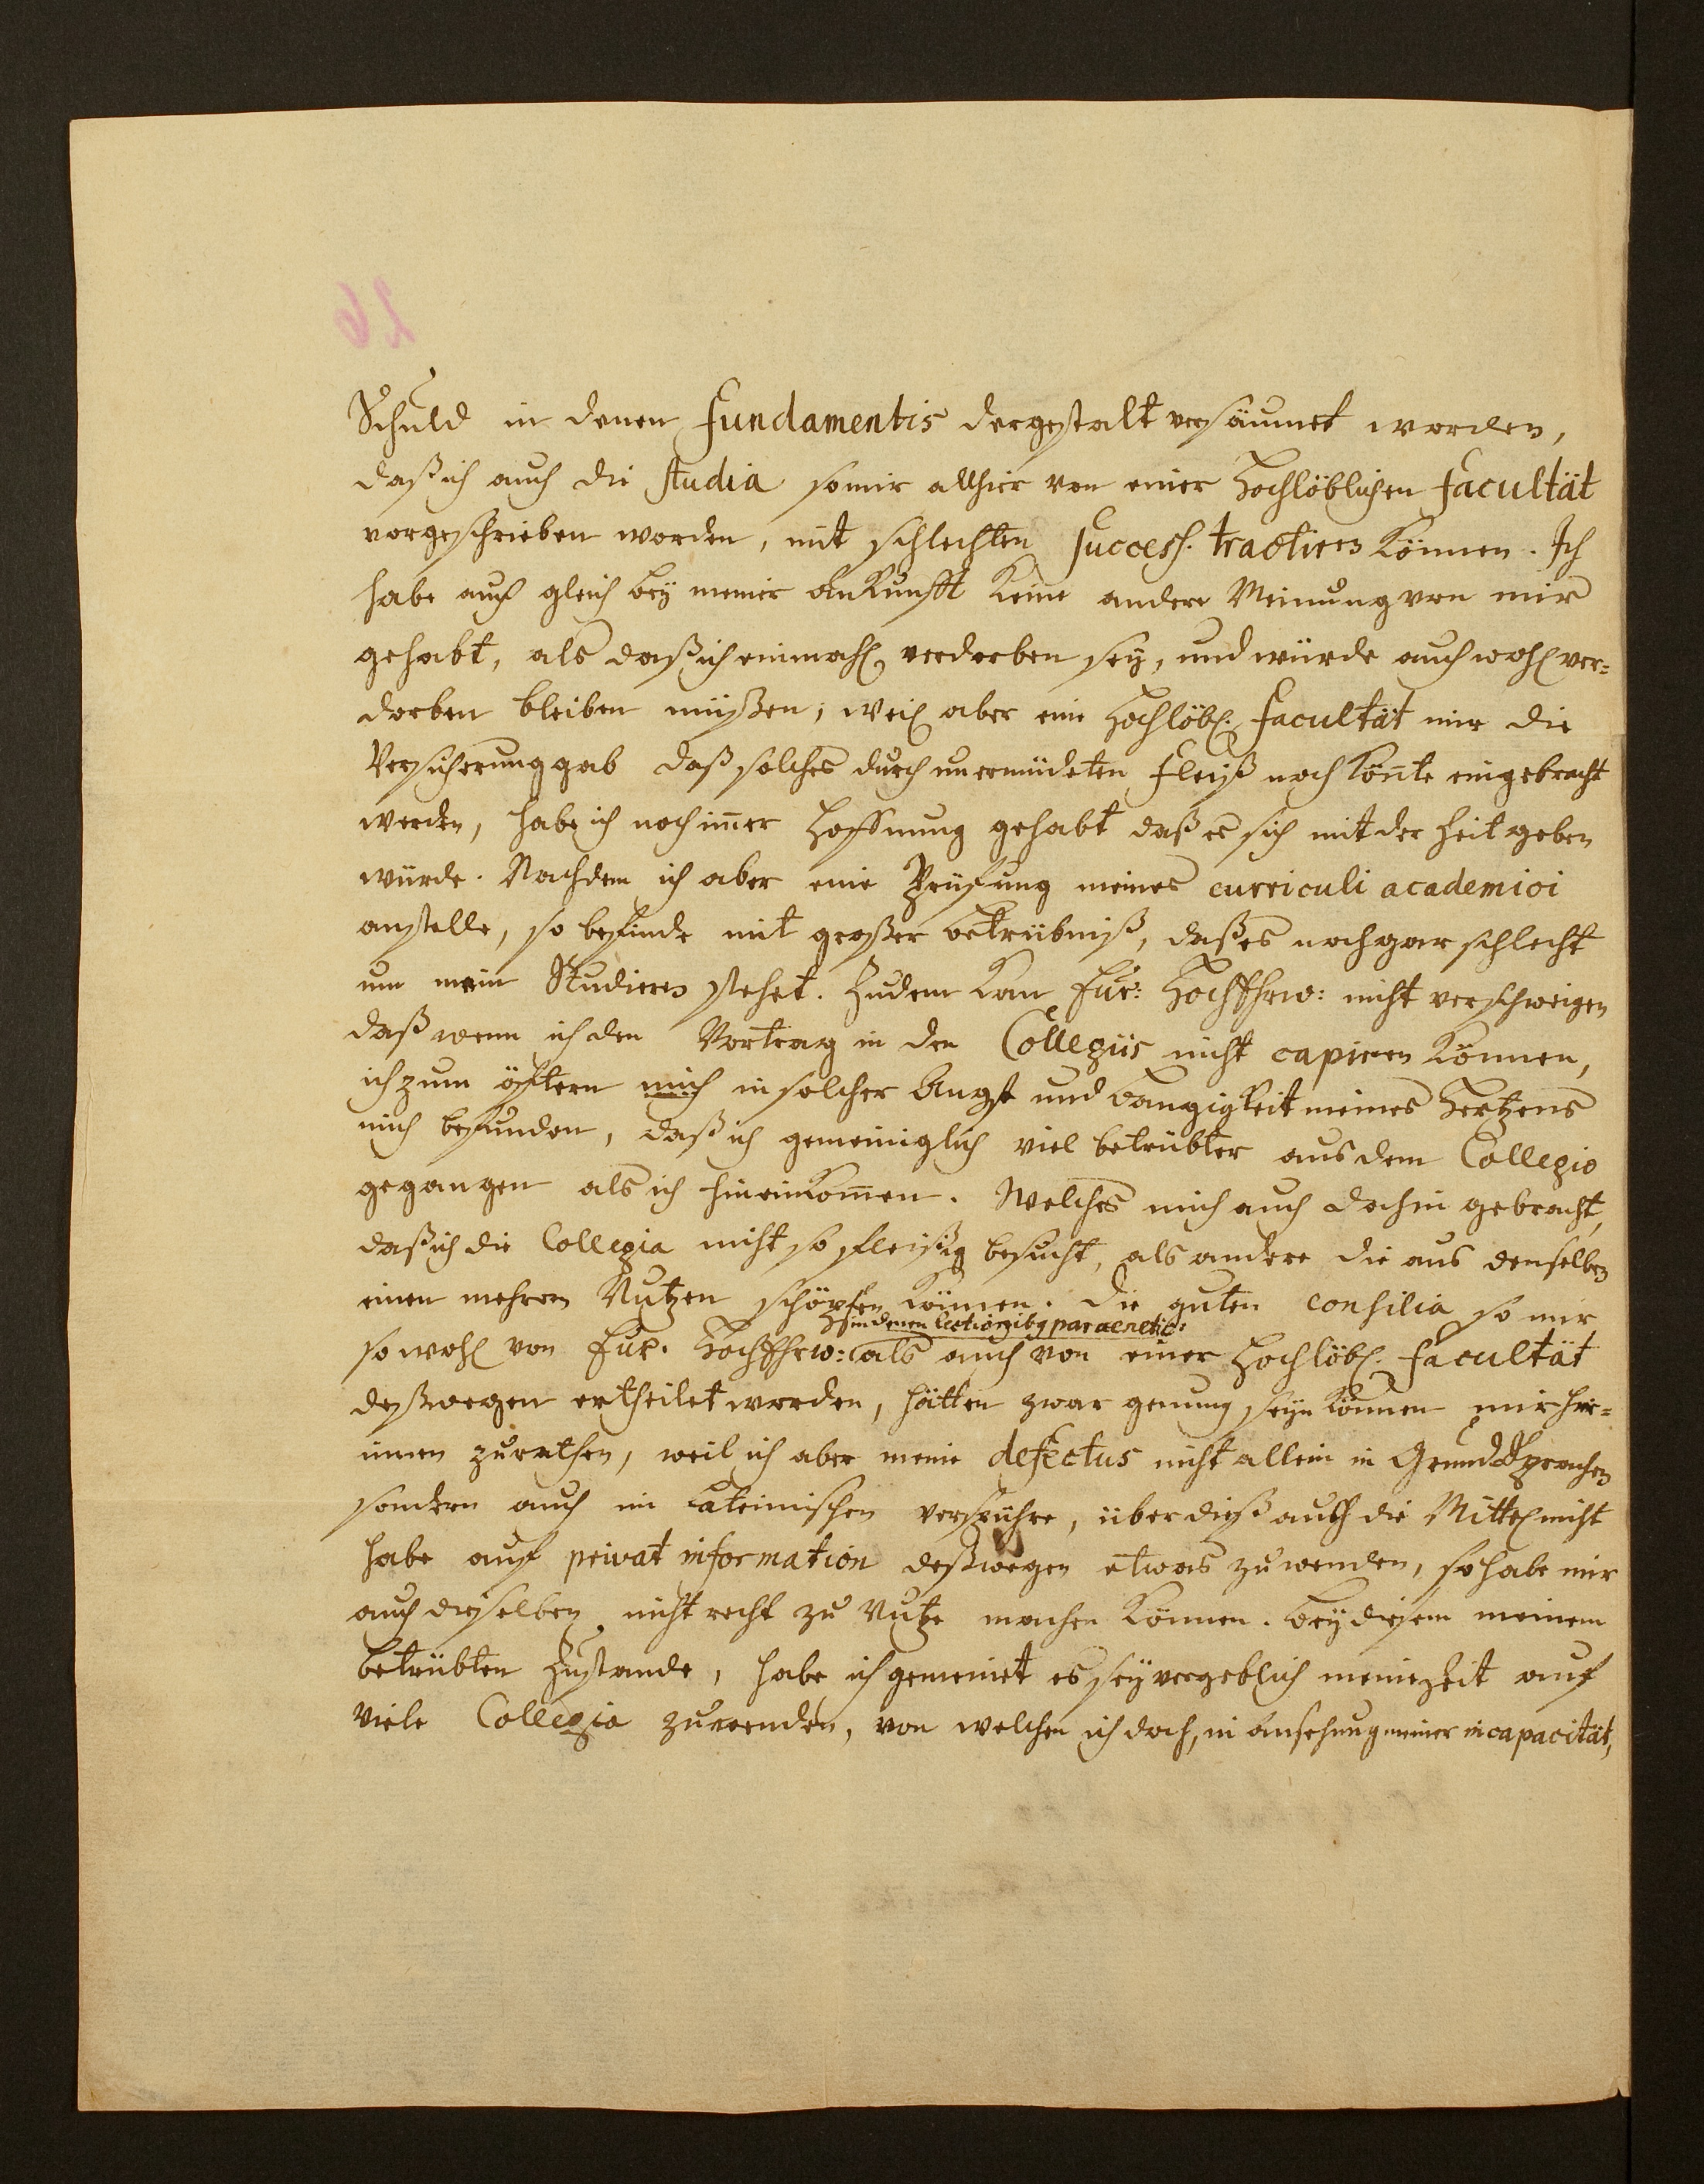 Schuld in denen Fundamentis dergestalt versäumet worden,
daß ich auch die studia so mir allhier von einer Hochlöblichen Facultät
vorgeschrieben worden, mit schlechten success. tractiren können. Ich
habe auch gleich bey meiner Ankunfft keine andere Meinung von mir
gehabt, als daß ich einmahl verdorben sey, und würde auch wohl ver=
dorben bleiben müßen; weil aber eine Hochlöbl. Facultät mir die
Versicherung gab daß solches durch unermüdeten Fleiß noch könte eingebracht
werden, habe ich noch immer Hoffnung gehabt daß es sich mit der Zeit geben
würde. Nachdem ich aber eine Prüfung meines curriculi academici
anstelle, so befinde mit großer Betrübniß, daß es noch gar schlecht
um mein Studiren stehet. Zudem kan Eur: HochEhrw: nicht verschweigen
daß wenn ich den Vortrag in den Collegiis nicht capiren können,
ich zum öftern mich in solcher Angst und Bangigkeit meines Hertzens
mich befunden, daß ich gemeiniglich viel betrübter aus dem Collegio
gegangen als ich hineinkommen. Welches mich auch dahin gebracht,
daß ich die Collegia nicht so fleißig besucht, als andere die aus denselben
einen mehrern Nutzen schöpfen können. Die guten consilia so mir
in denen lectionibq paraenetic:
so wohl von Eur. HochEhrw: als auch von einer Hochlöbl. Facultät
deßwegen ertheilet worden, hätten zwar genung seyn können mir hie=
innen zu rathen, weil ich aber meine defectus nicht allein in Grund Sprachen
sondern auch im Lateinischen verspühre, über dieß auch die Mittel nicht
habe auf privat information deßwegen etwas zu wenden, so habe mir
auch dieselben nicht recht zu Nutze machen können. Bey diesem meinem
betrübten Zustande, habe ich gemeinet es sey vergeblich meine Zeit auf
viele Collegia zu wenden, von welchen ich doch, in Ansehung meiner incapacität,